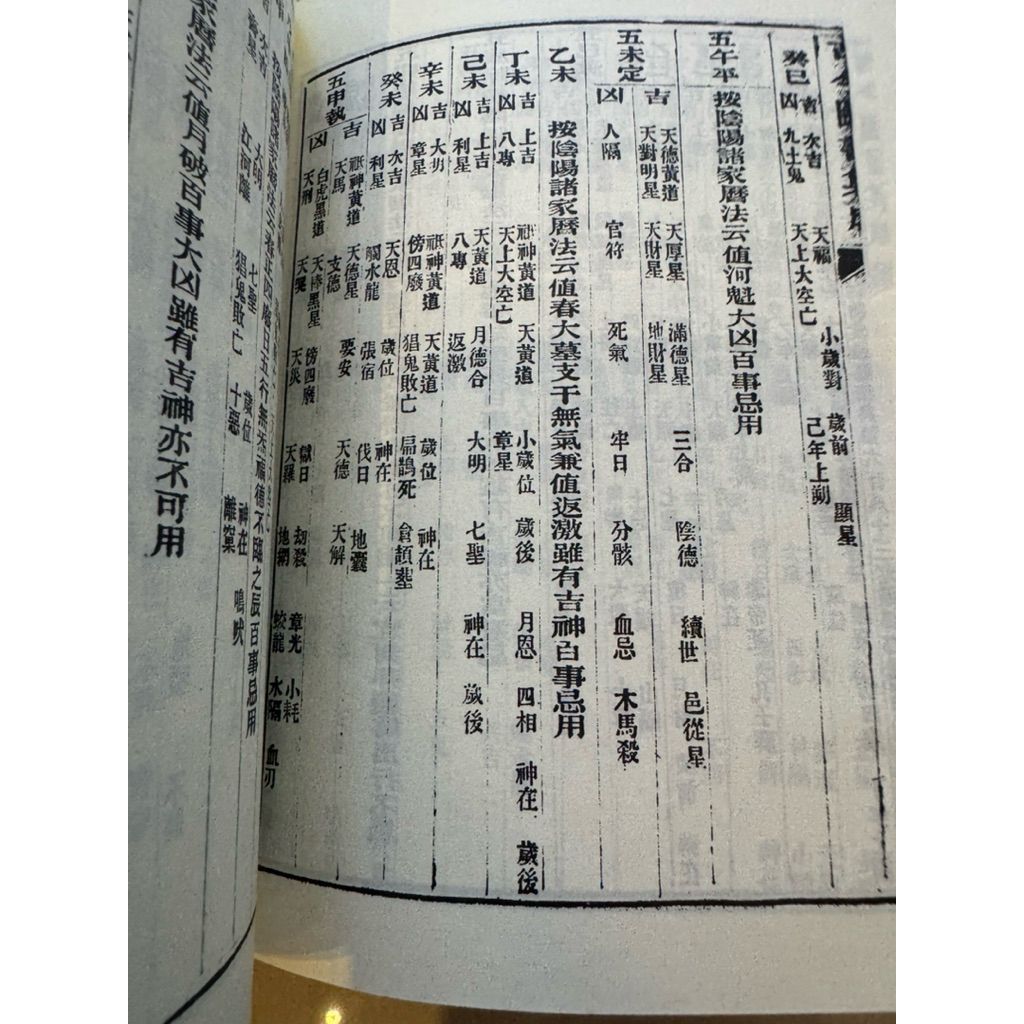 癸巳 吉 次吉 天福 小歲對 歲前 顯星
凶 九土鬼 天上大空亡 己年上朔
五午平 按陰陽諸家曆法云值河魁大凶百事忌用
五未定 吉 天德黃道 天厚星 滿德星 三合 陰德 續世 邑從星
天對明星 天財星 地財星
凶 人隔 官符 死氣 牢日 分骸 血忌 木馬殺
乙未 按陰陽諸家曆法云值春大墓支干無氣兼值返激雖有吉神百事忌用
丁未 吉 上吉 祇神黃道 天黃道 小歲位 歲後 月恩 四相 神在 歲後
凶 八專 天上大空亡 章星
己未 吉 上吉 天黃道 月德合 大明 七聖 神在 歲後
凶 利星 八專 返激
辛未 吉 大明 祇神黃道 天黃道 歲位 神在
凶 章星 傍四廢 猖鬼敗亡 扁鵲死 倉頡塟
癸未 吉 次吉 天恩 歲位 神在
凶 利星 觸水龍 張宿 伐日 地囊
五申執 吉 祇神黃道 天德星 要安 天德 天解
天馬 支德
凶 白虎黑道 天棒黑星 傍四廢 獄日 劫殺 章光 小耗
天刑 天哭 天災 天羅 地網 蛟龍 水隔 血刃
大明 七聖 歲位 神在 鳴吠
江河離 猖鬼敗亡 十惡 離窠
家曆法云值月破百事大凶雖有吉神亦不可用